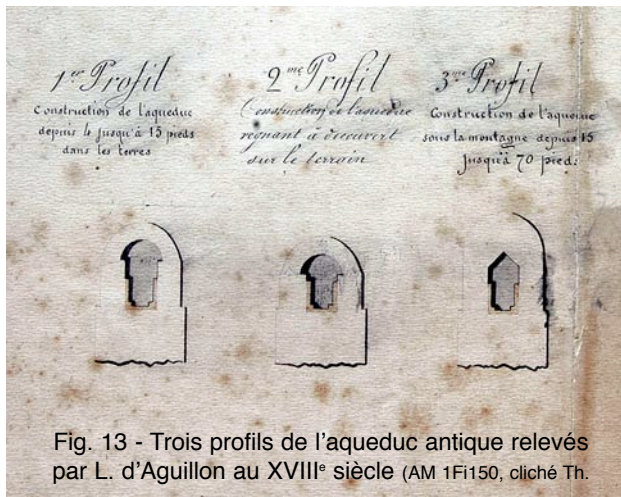 1er Profil
Construction de l'aqueduc
depuis 4 jusqu'à 15 pieds
dans les terres
2me Profil
Construction de l'aqueduc
regnant à decouvert
sur le terrain
3me Profil
Construction de l'aqueduc
sous la montagne depuis 15
jusqu'à 70 pieds
Fig. 13 - Trois profils de l'aqueduc antique relevés
par L. d'Aguillon au XVIIIe siècle (AM 1Fi150, cliché Th.